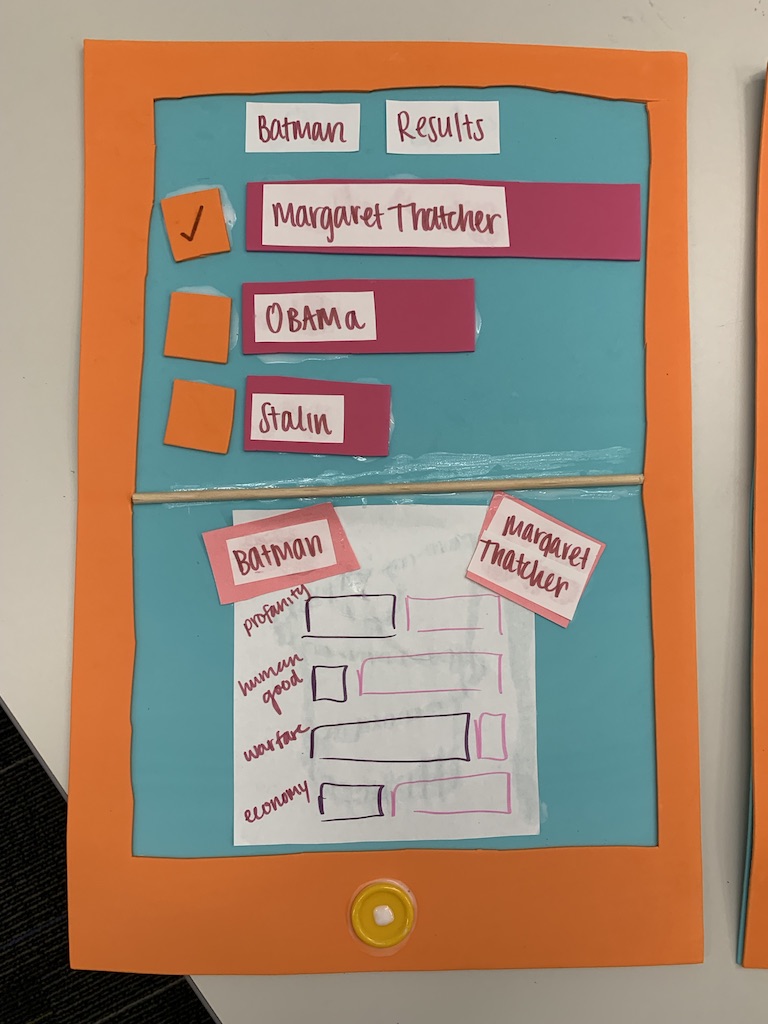 Batman Results
✓ Margaret Thatcher
OBAMA
Stalin
BATMAN
Margaret
Thatcher
profanity
human
good
warfare
economy